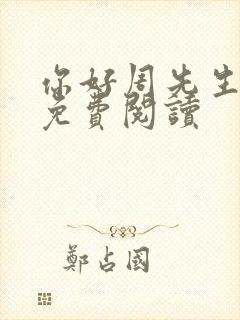 你好周先生
免費閱讀
鄭占國